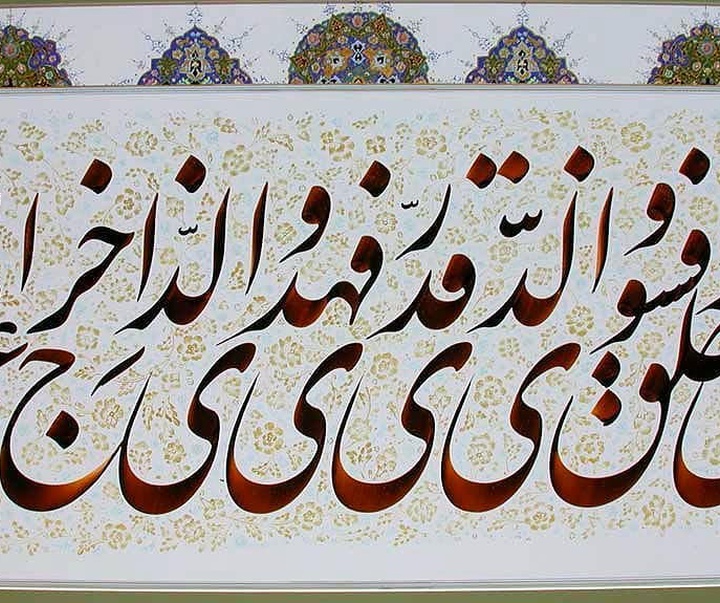 خلق فسوی و الذی قدّر فهدی و الذی اخرج